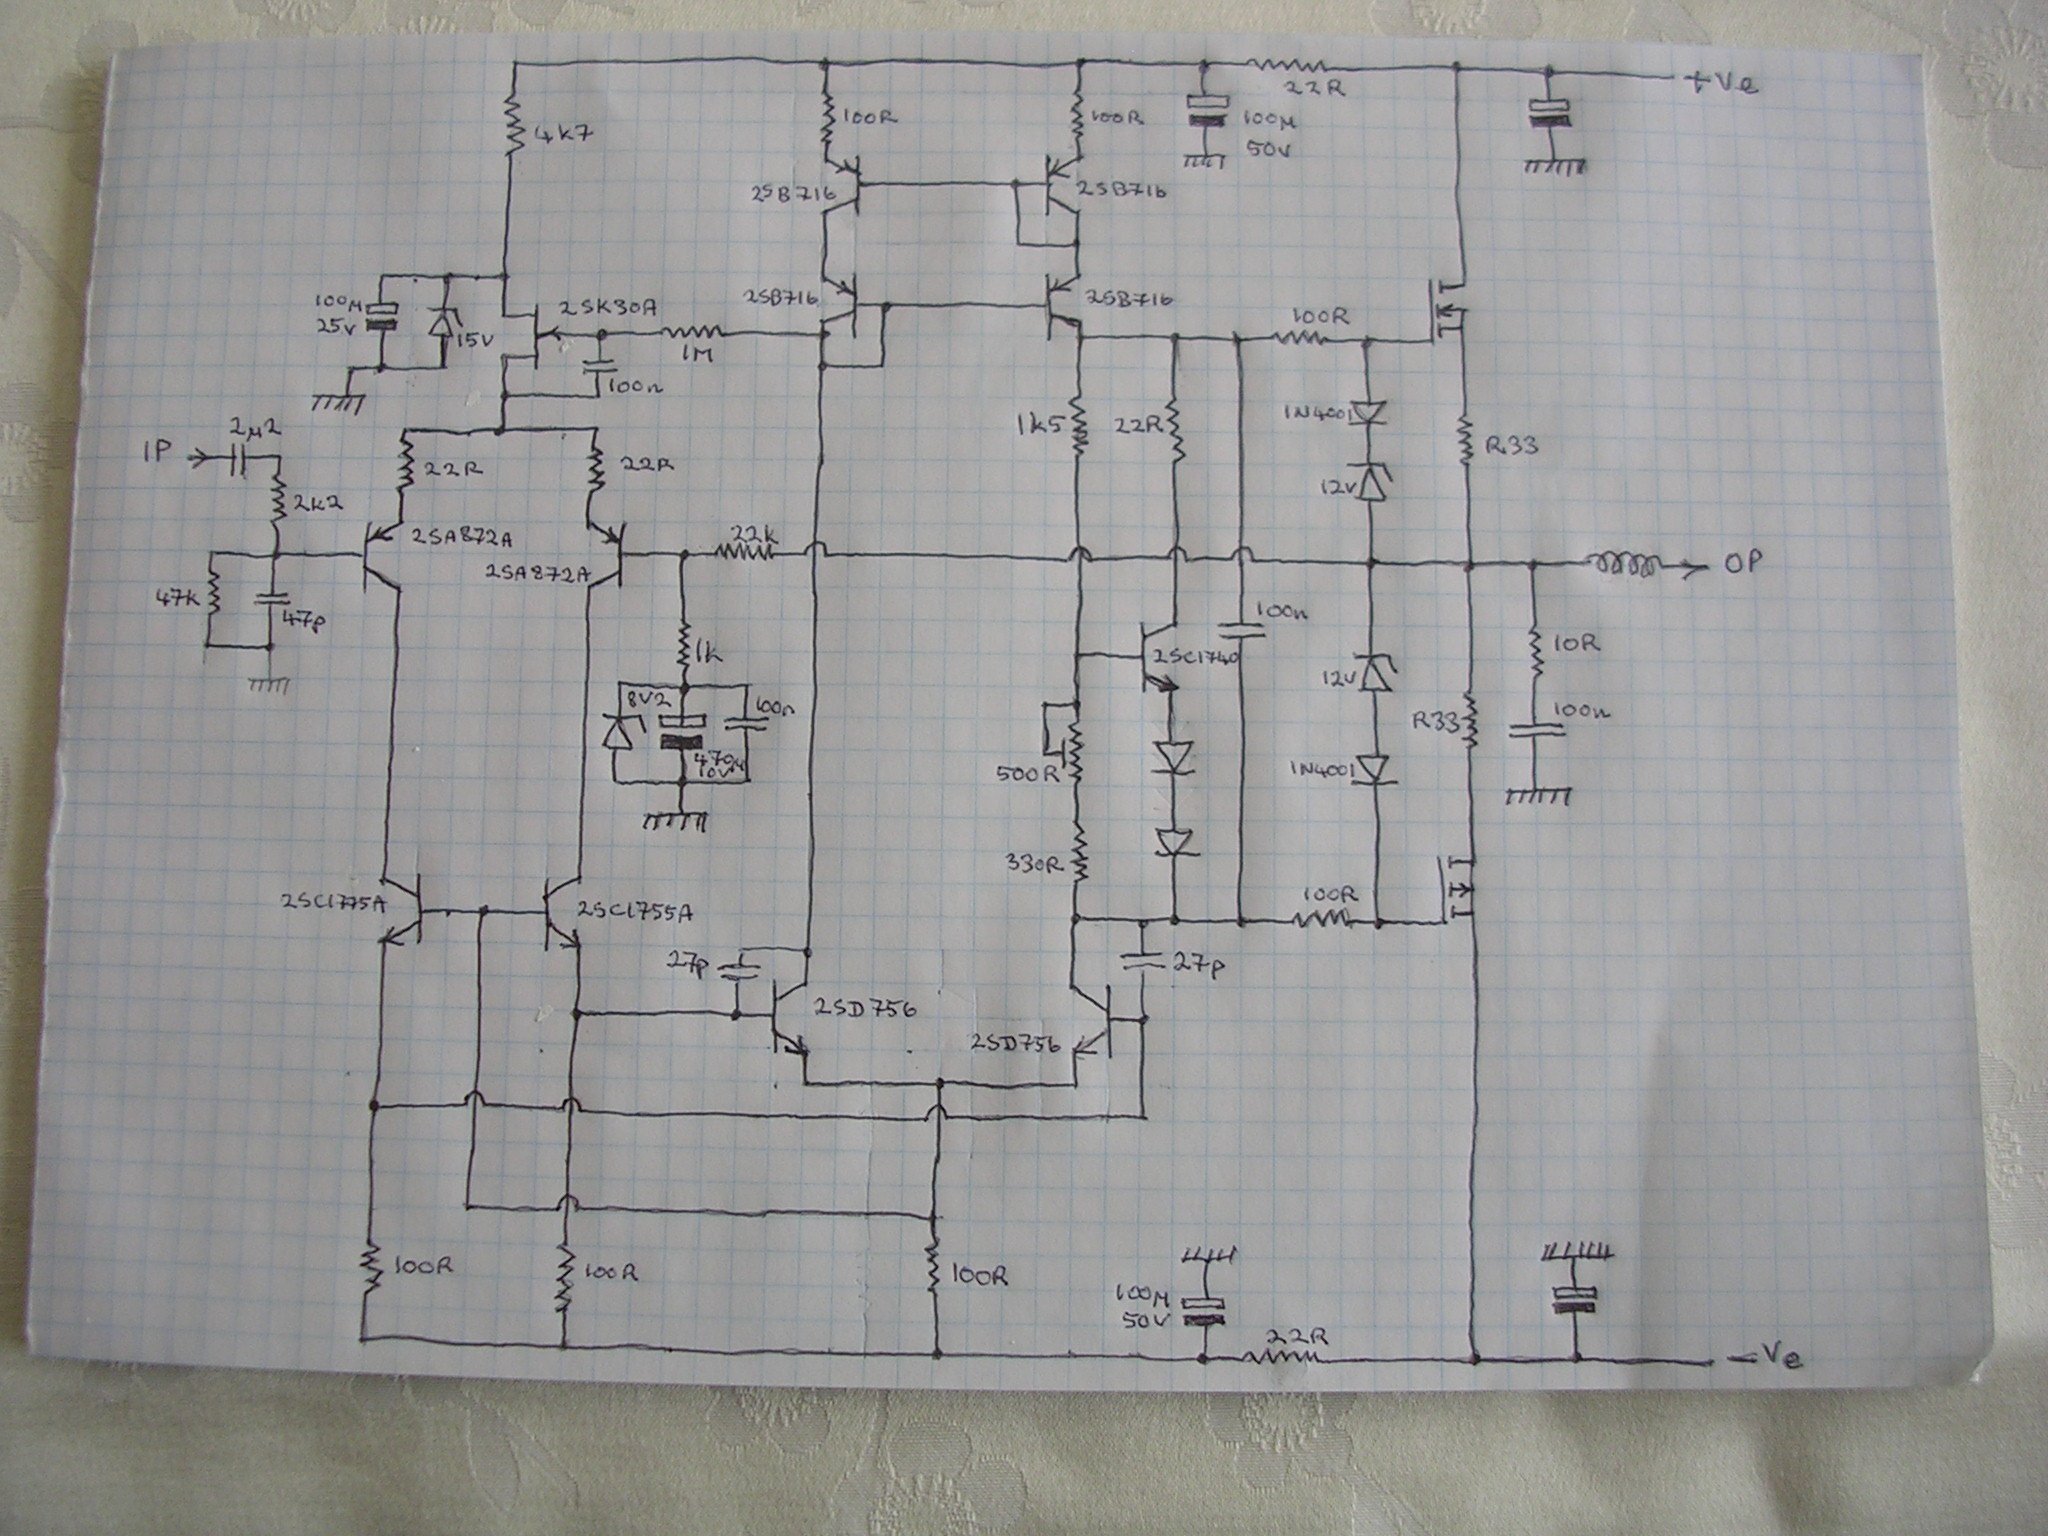 +Ve
22R
4k7
100R
100R
100µ
50v
2SB716
2SB716
100µ
25v
15v
2SK30A
2SB716
2SB716
1M
100n
100R
1N4001
1k5
22R
R33
12v
IP
2µ2
22R
22R
2k2
2SA872A
2SA872A
22k
OP
47k
47p
1k
8V2
100n
470µ
10v
2SC1740
100n
12v
10R
R33
100n
500R
1N4001
330R
100R
2SC1775A
2SC1755A
27p
27p
2SD756
2SD756
100R
100R
100R
100µ
50V
22R
-Ve